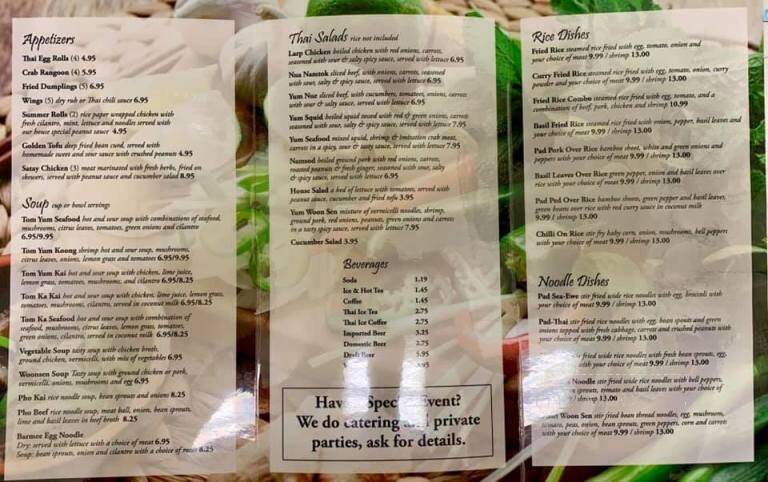 Appetizers
Thai Egg Rolls (4) 4.95
Crab Rangoon (4) 5.95
Fried Dumplings (5) 6.95
Wings (5) dry rub or Thai chili sauce 6.95
Summer Rolls (2) rice paper wrapped chicken with
fresh cilantro, mint, lettuce and noodles served with
our house special peanut sauce 4.95
Golden Tofu deep fried bean curd, served with
homemade sweet and sour sauce with crushed peanuts 4.95
Satay Chicken (3) meat marinated with fresh herbs, fried on
skewers, served with peanut sauce and cucumber salad 8.95
Soup cup or bowl servings
Tom Yum Seafood hot and sour soup with combinations of seafood,
mushrooms, citrus leaves, tomatoes, green onions and cilantro
6.95/9.95
Tom Yum Koong shrimp hot and sour soup, mushrooms,
citrus leaves, onions, lemon grass and tomatoes 6.95/9.95
Tom Yum Kai hot and sour soup with chicken, lime juice,
lemon grass, tomatoes, mushrooms, and cilantro 6.95/8.25
Tom Ka Kai hot and sour soup with chicken, lime juice, lemon grass,
tomatoes, mushrooms, cilantro, served in coconut milk 6.95/8.25
Tom Ka Seafood hot and sour soup with combination of
seafood, mushrooms, citrus leaves, lemon grass, tomatoes,
green onions, cilantro, served in coconut milk 6.95/8.25
Vegetable Soup tasty soup with chicken broth,
ground chicken, vermicelli, with mix of vegetables 6.95
Woonsen Soup Tasty soup with ground chicken or pork,
vermicelli, onions, mushrooms and egg 6.95
Pho Kai rice noodle soup, bean sprouts and onions 8.25
Pho Beef rice noodle soup, meat ball, onion, bean sprouts,
lime and basil leaves in beef broth 8.25
Barmee Egg Noodle
Dry: served with lettuce with a choice of meat 6.95
Soup: bean sprouts, onion and cilantro with a choice of meat 8.25
Thai Salads rice not included
Larp Chicken boiled chicken with red onions, carrots,
seasoned with sour & salty spicy sauce, served with lettuce 6.95
Nua Namtok sliced beef, with onions, carrots, seasoned
with sour, salty & spicy sauce, served with lettuce 6.95
Yum Nue sliced beef, with cucumber, tomatoes, onions, carrots
with sour & salty sauce, served with lettuce 6.95
Yum Squid boiled squid tossed with red & green onions, carrots
seasoned with sour, salty & spicy sauce, served with lettuce 7.95
Yum Seafood mixed squid, shrimp & imitation crab meat,
carrots in a spicy, sour & tasty sauce, served with lettuce 7.95
Namsod boiled ground pork with red onions, carrots,
roasted peanuts & fresh ginger, seasoned with sour, salty
& spicy sauce, served with lettuce 6.95
House Salad a bed of lettuce with tomatoes, served with
peanut sauce, cucumber and fried tofu 3.95
Yum Woon Sen mixture of vermicelli noodles, shrimp,
ground pork, red onions, peanuts, green onions and carrots
in a tasty spicy sauce, served with lettuce 7.95
Cucumber Salad 3.95
Beverages
Soda 1.19
Ice & Hot Tea 1.45
Coffee 1.45
Thai Ice Tea 2.75
Thai Ice Coffee 2.75
Imported Beer 3.25
Domestic Beer 2.75
Draft Beer 5.95
Special Event?
We do catering and private
parties, ask for details.
Rice Dishes
Fried Rice steamed rice fried with egg, tomato, onion and
your choice of meat 9.99 / shrimp 13.00
Curry Fried Rice steamed rice fried with egg, tomato, onion, curry
powder and your choice of meat 9.99 / shrimp 13.00
Fried Rice Combo steamed rice fried with egg, tomato, and a
combination of beef, pork, chicken and shrimp 10.99
Basil Fried Rice steamed rice fried with onion, pepper, basil leaves and
your choice of meat 9.99 / shrimp 13.00
Pad Pork Over Rice bamboo shoot, white and green onions and
peppers with your choice of meat 9.99 / shrimp 13.00
Basil Leaves Over Rice green pepper, onion and basil leaves over
rice with your choice of meat 9.99 / shrimp 13.00
Pad Ped Over Rice bamboo shoots, green pepper and basil leaves,
green beans over rice with red curry sauce in coconut milk
9.99 / shrimp 13.00
Chilli On Rice stir fry baby corn, onion, mushrooms, bell peppers
with your choice of meat 9.99 / shrimp 13.00
Noodle Dishes
Pad Sea-Ewe stir fried wide rice noodles with egg, broccoli with
your choice of meat 9.99 / shrimp 13.00
Pad-Thai stir fried rice noodles with egg, bean sprouts and green
onions topped with fresh cabbage, carrots and crushed peanuts with
your choice of meat 9.99 / shrimp 13.00
fried wide rice noodles with fresh bean sprouts, egg,
9.99 / shrimp 13.00
Noodle stir fried wide rice noodles with bell peppers,
sprouts, tomato and basil leaves with your choice of
shrimp 13.00
Woon Sen stir fried bean thread noodles, egg, mushroom,
tomato, peas, onion, bean sprouts, green peppers, corn and carrots
with your choice of meat 9.99 / shrimp 13.00